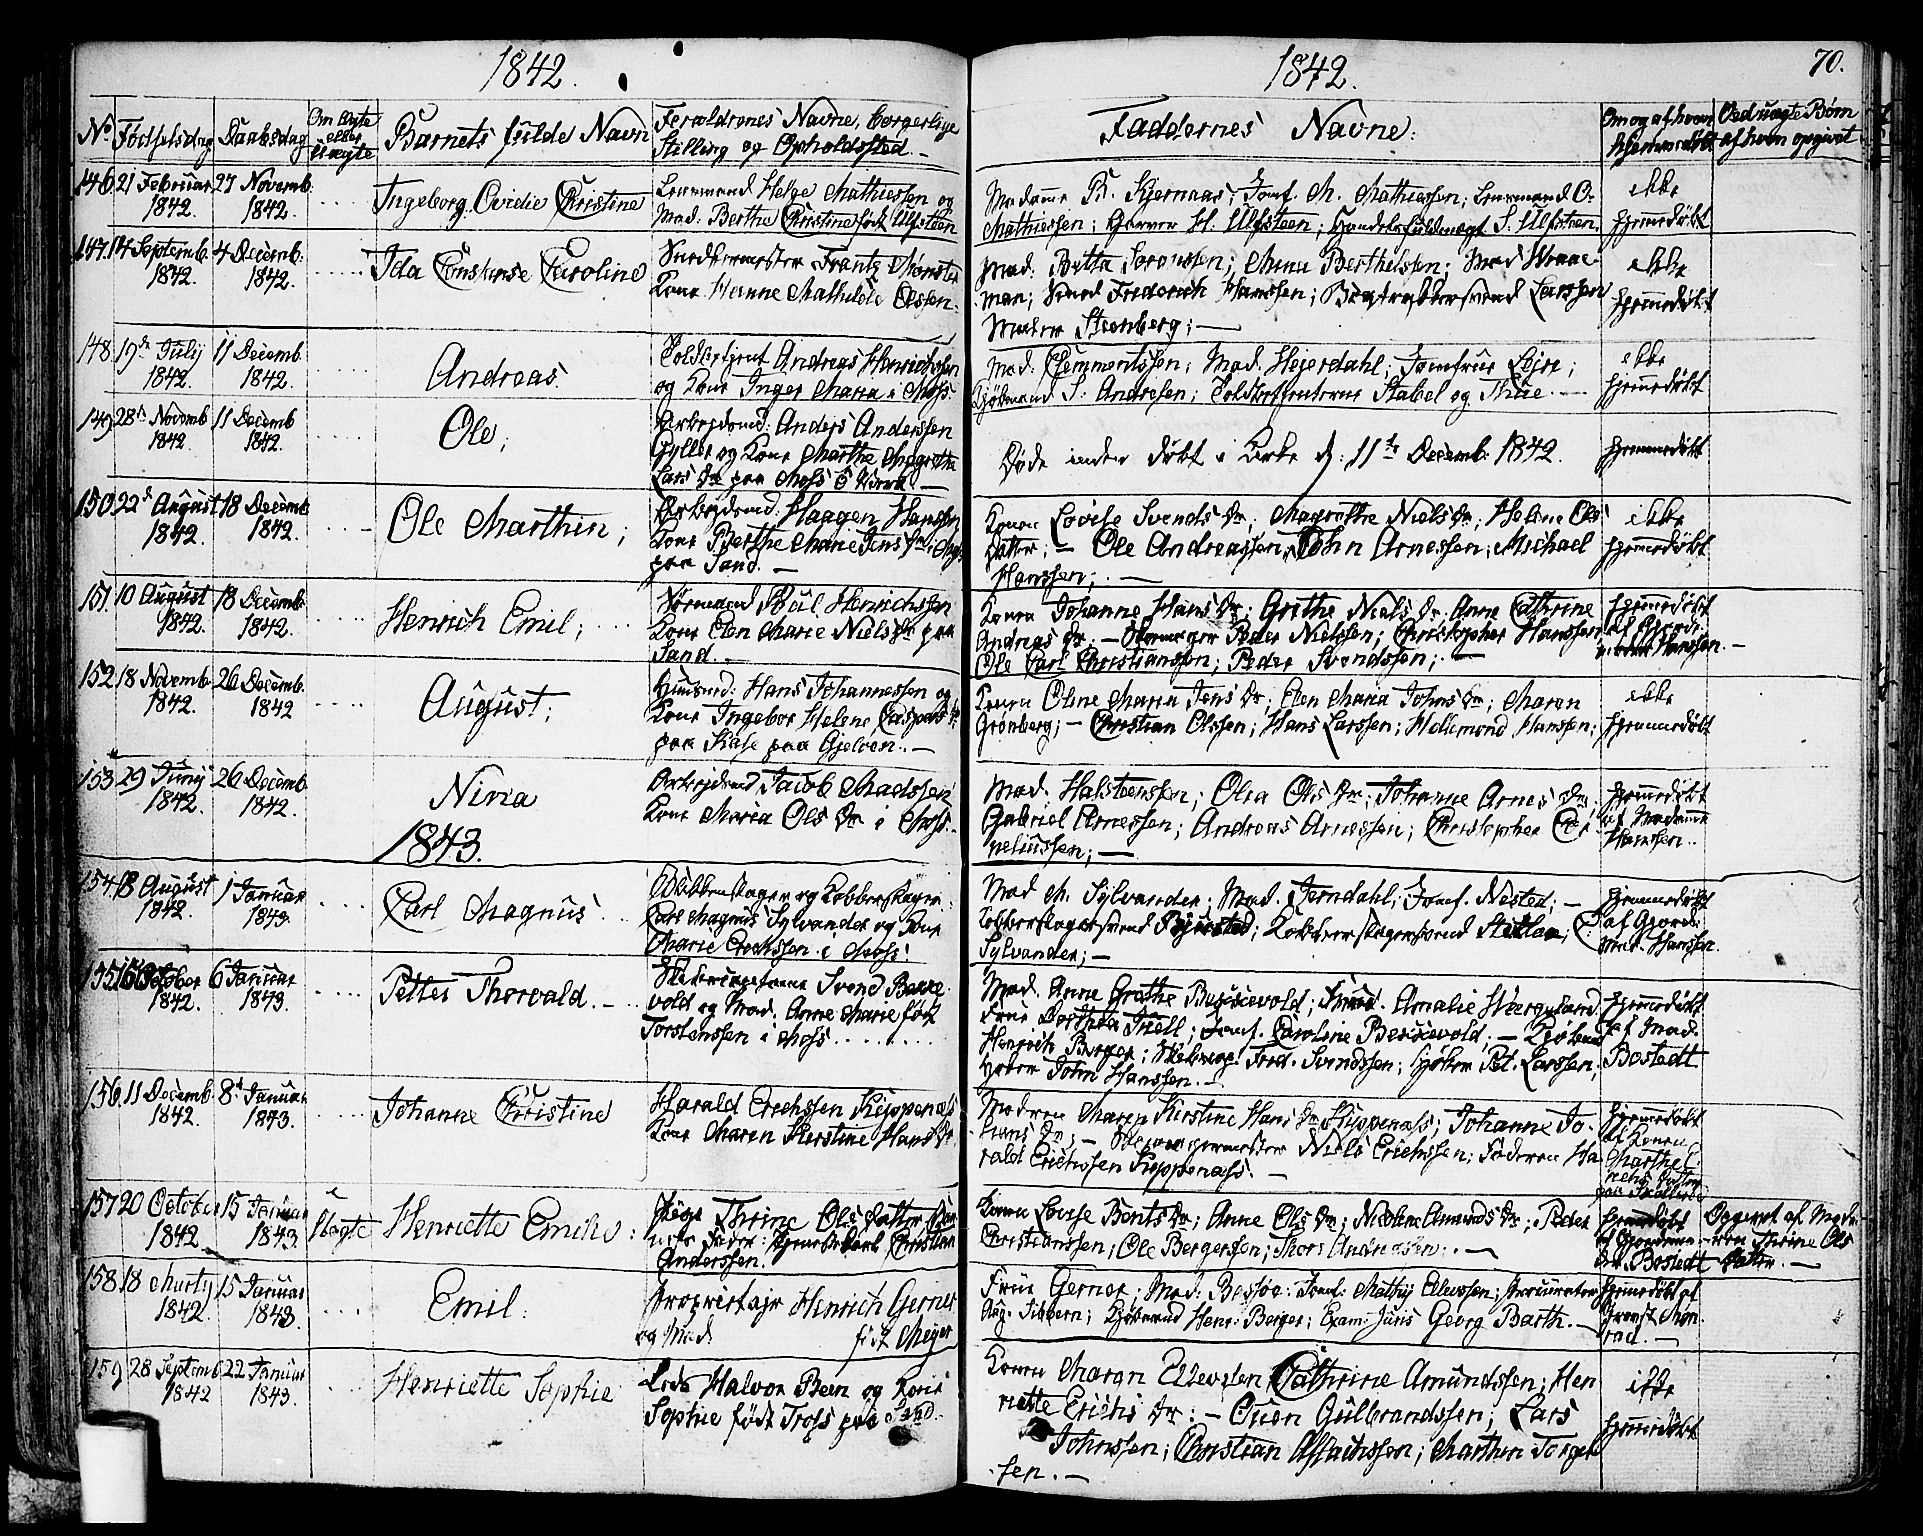 1842.
1842.
70.
No Fødselsdag Daabsdag Om Ægte eller Uægte Barnets fulde Navn Forældrenes Navne, borgerlige Stilling og Opholdssted.
Faddernes Navne:
Om og af hvem hjemmedøbt
Ved uægte Børn af hvem opgivet
146. 21 Februar 1842. 27 Novemb. 1842. Ingeborg Ovidie Christine
Lensmand Helge Mathiessen og
Mad. Berthe Christine født Ulfsteen
Madame B. Kjernaas; Jomf. M. Mathiessen; Lensmand O.
Mathiessen; Garver H. Ulfsteen; Handelsfuldmægt. S. Ulfsteen.
ikke
hjemmedøbt
147. 14 Septemb. 1842. 4 Decemb. 1842. Ida Constanse Caroline
Snedkermester Frantz Monster
Kone Hanne Mathilde Olssen.
Mad: Betta Sørenssen; Anna Berthelssen; Mad Wraae-
man; Smed Frederich Hanssen; Bogtrykkersvend Larssen
Maler Steenberg;
ikke
hjemmedøbt
148. 19de July 1842. 11 Decemb. 1842. Andreas.
Toldbetjent Andreas Henrichsen
og Kone Inger Maria i Moss.
Mad: Clemmentssen; Mad. Hejerdahl; Jomfrue Lejre;
Kjøbmand S. Andresen; Toldbetjenterne Stabel og Thue.
ikke
hjemmedøbt
149. 28 Novemb 1842. 11 Decemb 1842. Ole;
Arbejdsmd: Anders Anderssen
og Kone Marthe Magrethe
Lars Dr paa Moss
Døde inden døbt i Kirke d: 11te Decemb. 1842.
hjemmedøbt
150. 22de August 1842. 18 Decemb 1842. Ole Marthin;
Arbejdsmd: Haagen Hanssen
Kone Berthe Marie Jens Dr
paa Sand.
Konen Lovise Svends Dr; Magrethe Niels Dr; Helene Ols
Datter; Ole Andreassen; John Arnessen; Michael
Hanssen;
ikke
hjemmedøbt
151. 10 August 1842. 18 Decemb 1842. Henrich Emil;
Paul Henrichssen
Kone Elen Marie Niels Dr paa
Sand.
Konen Johanne Hans Dr; Grethe Niels Dr Anne Cathrine
Andreas Dr; Peder Nielssen; Christopher Hanssen
Ole Carl Christianssen; Peder Svendssen;
hjemmedøbt
af Gjord:
Hanssen.
152. 18 Novemb. 1842. 26 Decemb. 1842 August;
Huusmd: Hans Johannessen og
Kone Ingebor Helene Caspers Dr
paa Kase paa Gjeløen.
Konen Oline Maria Jens Dr; Elen Maria Johns Dr; Maren
Grønberg; Christian Olssen; Hans Larssen; Hansen;
ikke
hjemmedøbt
153. 29 Juny 1842. 26 Decemb. 1842. Niria
Arbejdsmd Jacob Madssen
Kone Maria Ols Dr i Moss.
Mad. Halstenssen; Olea Ols Dr; Johanne Arnes Dr
Gabriel Arnessen; Andreas Arnessen; Christopher Cor-
neliussen;
hjemmedøbt
af Madamme
Hanssen.
1843.
154. 8 August 1842. 1 Januar 1843. Carl Magnus
Blikkenslager og Kobberslager
Carl Magnus Sylvander og Kone
Marie Erichssen i Moss.
Mad M. Sylvander; Mad. Jerndahl; Jomf. Nested;
Kobberslagersvend; Kobberslagersvend
Sylvander;
hjemmedøbt
af Gjord:
Mad. Hanssen.
155. October 1842. 6 Januar 1843. Petter Thorvald.
Svend Besse-
vold og Mad. Anne Marie født
Torstenssen i Moss
Mad. Anne Grethe Bessevold; Amalie
Frue Dorthea Træll; Jomf. Caroline Bessevold; Kjøbmd
Henrich Berger; Fred. Svendssen; Pet. Larssen;
John Hanssen.
hjemmedøbt
af Mad.
Bostedt
156. 11 Decemb. 1842. 8de Januar 1843. Johanne Christine
Harald Erechssen Kippenæss
Kone Maren Kerstine Hans Dr
Madren Maren Kirstine Hans Dr Kippenæss; Johanne Jo-
hans Dr; Niels Erichssen; Faderen Ha-
rald Erichssen Kippenæss.
hjemmedøbt
af Konen
Marthe
157. 20 October 1842. 15 Januar 1843. Uægte Henriette Emilie:
Pige Thrine Ols Datter Bar-
nets Fader: Christian
Anderssen.
Konen Lovise Bents Dr; Anne Ols Dr; Nicoline Amunds Dr; Peder
Christianssen; Ole Bergersen; Thor Andreasen.
hjemmedøbt
af
Bostedt
Opgivet af Mode-
ren Thrine Ols
Datter.
158. 18 Marty 1842. 15 Januar 1843. Emil.
Proprietair Henrich Gerner
og Mad. født Mejer
Frue Gerner; Mad: Bessøe; Jomf. Mathy Ellevssen; Procurator
Aug. Sibbern; Kjøbmand Henr. Berger; Exam: Juris Georg Barth.
hjemmedøbt af
159 28 Septemb 1842 22 Januar 1843. Henriette Sophie
Lods Halvor Been og Kone
Sophie født Tross paa Sand.
Konen Maren Ellevsen; Cathrine Amundssen; Hen-
riette Erichs Dr; Ouen Gulbrandssen; Lars
Johnssen; Christian; Marthin Torger-
sen.
ikke
hjemmedøbt